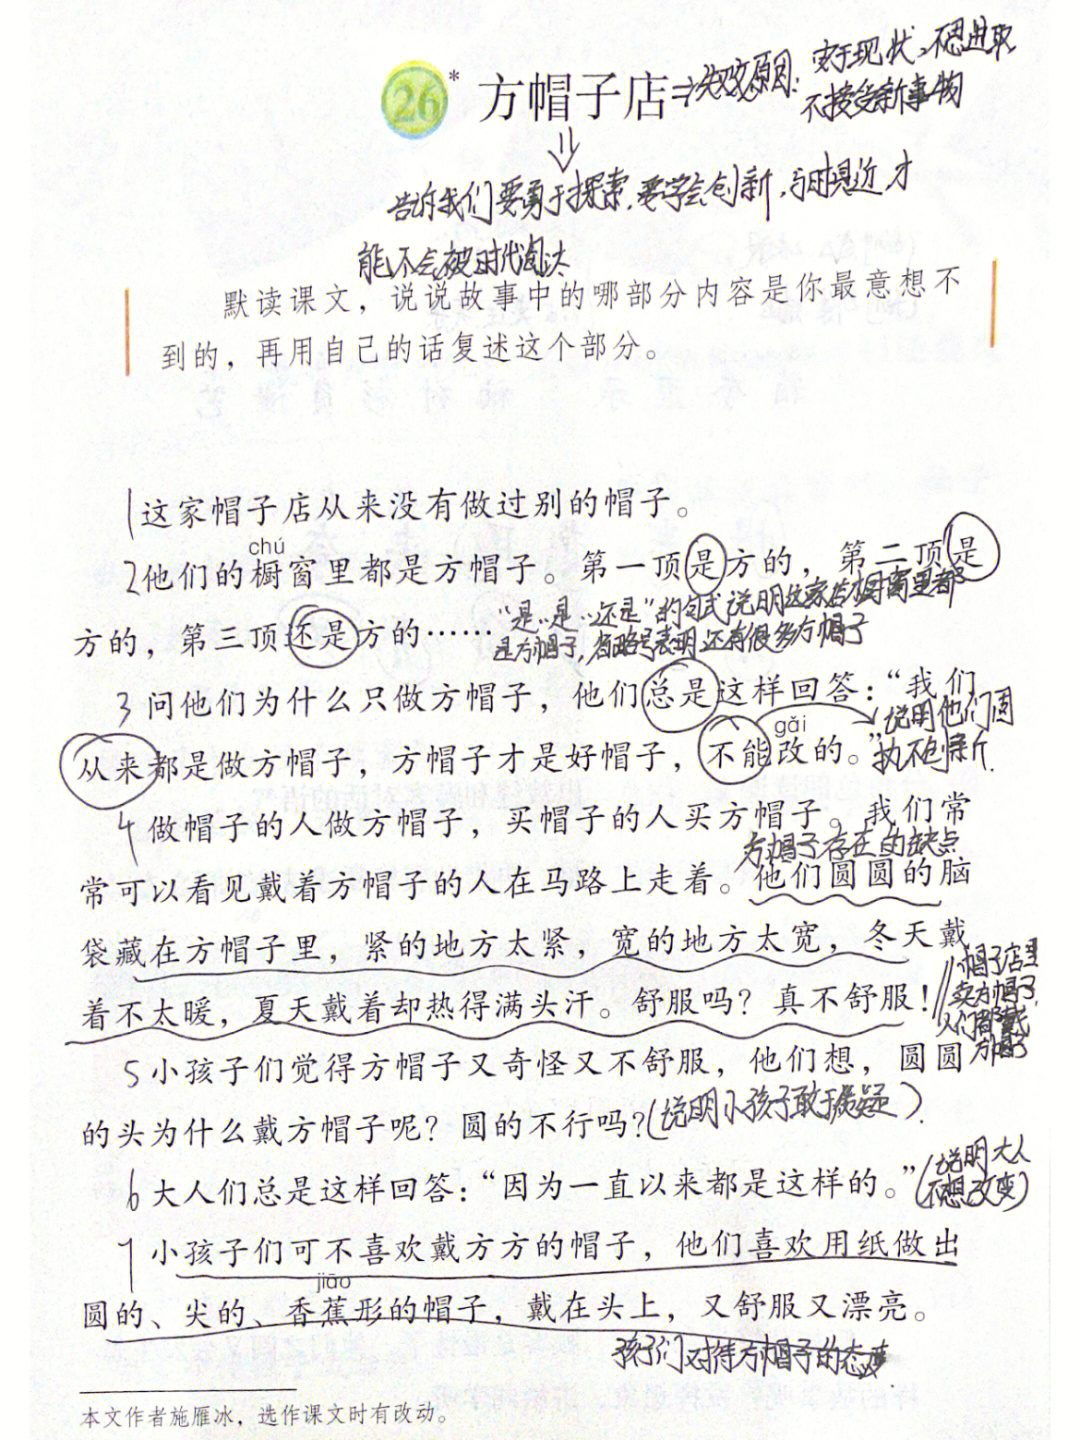 26* 方帽子店⇒失败原因：安于现状、不思进取
不接受新事物
告诉我们要勇于探索，要学会创新，与时具近，才
能不会被时代淘汰
默读课文，说说故事中的哪部分内容是你最意想不
到的，再用自己的话复述这个部分。
1 这家帽子店从来没有做过别的帽子。
chú
2 他们的橱窗里都是方帽子。第一顶是方的，第二顶是
方的，第三顶还是方的……
“是…是…还是”的句式说明这家店橱窗里都
是方帽子，省略号表明还有很多方帽子
3 问他们为什么只做方帽子，他们总是这样回答：“我们
gǎi
从来都是做方帽子，方帽子才是好帽子，不能改的。”
说明他们固
执不创新。
4 做帽子的人做方帽子，买帽子的人买方帽子。我们常
方帽子存在的缺点
常可以看见戴着方帽子的人在马路上走着。他们圆圆的脑
袋藏在方帽子里，紧的地方太紧，宽的地方太宽，冬天戴
着不太暖，夏天戴着却热得满头汗。舒服吗？真不舒服！
帽子店里
卖方帽子，
人们都戴
方帽子
5 小孩子们觉得方帽子又奇怪又不舒服，他们想，圆圆
的头为什么戴方帽子呢？圆的不行吗？（说明小孩子敢于质疑）
6 大人们总是这样回答：“因为一直以来都是这样的。”
（说明大人
不想改变）
7 小孩子们可不喜欢戴方方的帽子，他们喜欢用纸做出
jiāo
圆的、尖的、香蕉形的帽子，戴在头上，又舒服又漂亮。
孩子们对待方帽子的态度
本文作者施雁冰，选作课文时有改动。